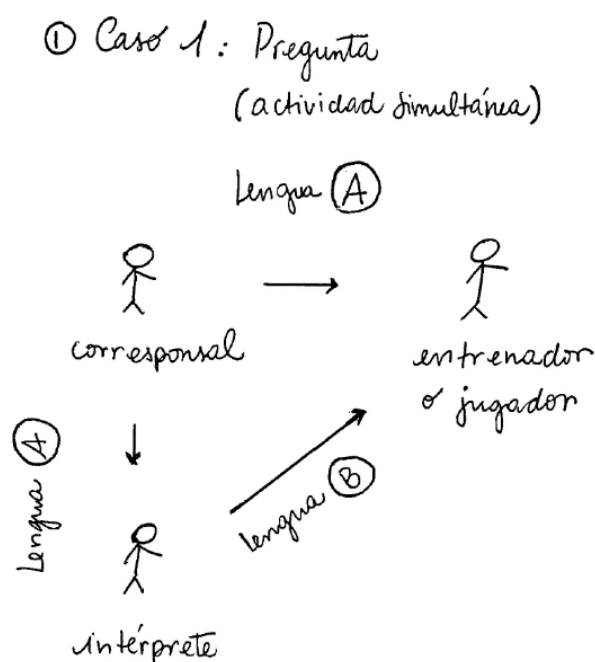 ① Caso 1: Pregunta
(actividad simultánea)
Lengua Ⓐ
corresponsal
entrenador
o jugador
Lengua Ⓐ
Lengua Ⓑ
intérprete